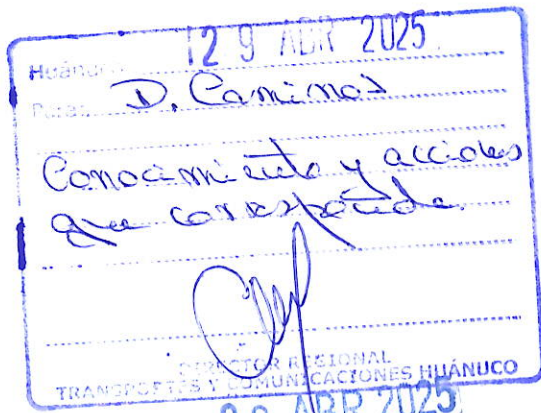 Huánuco, 29 ABR 2025
Para: D. Caminos
Conocimiento y acciones
que corresponda.
DIRECTOR REGIONAL
TRANSPORTES Y COMUNICACIONES HUÁNUCO
ABR 2025